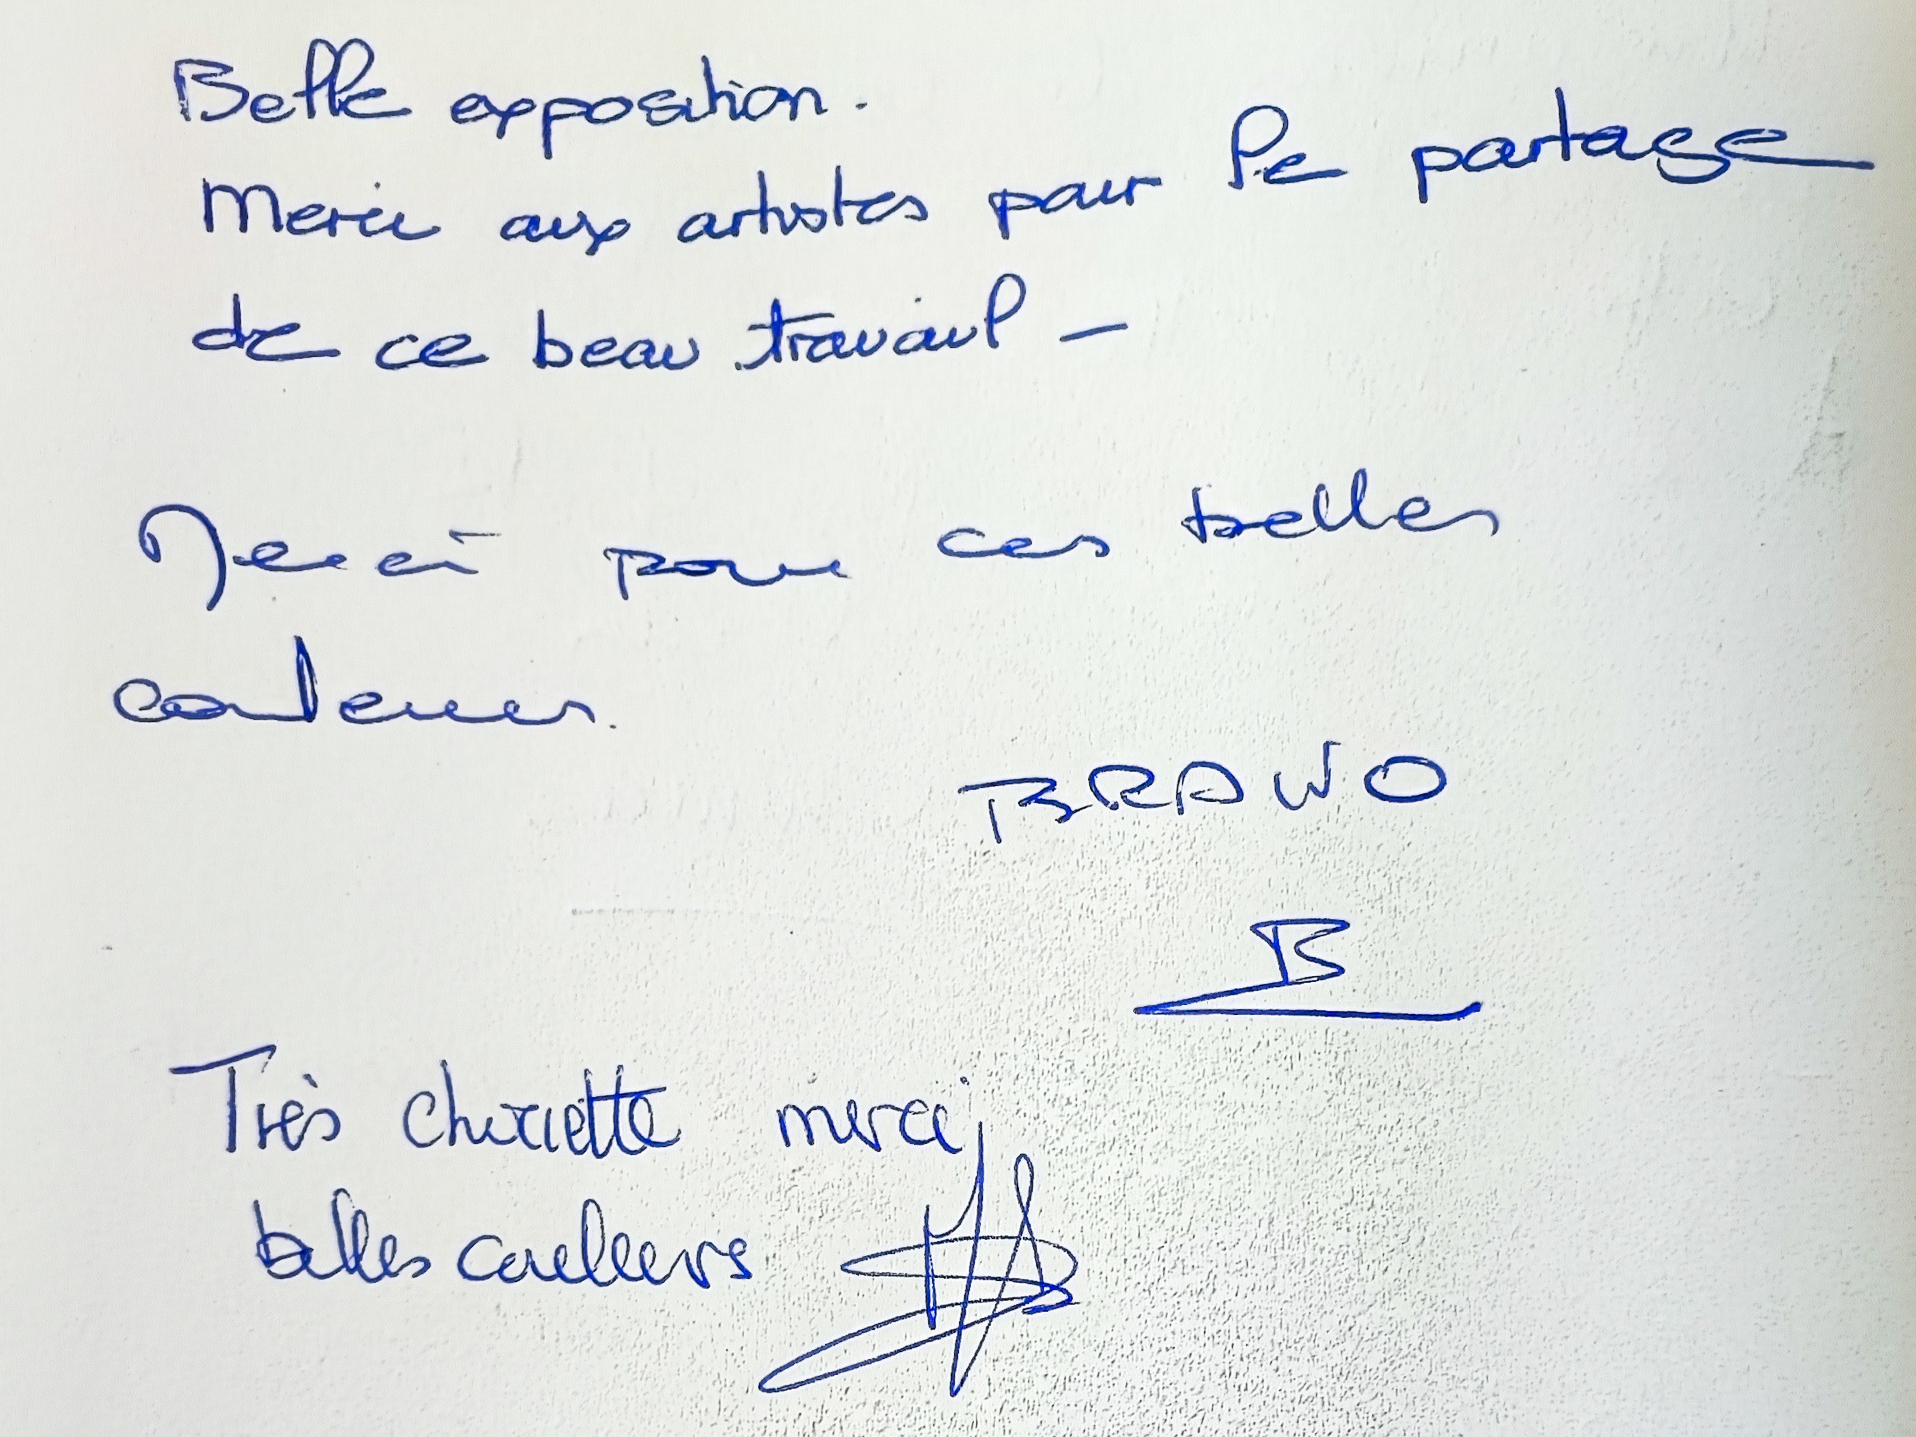 Belle exposition.
Merci aux artistes pour le partage
de ce beau travail -
Merci pour ces belles
couleurs.
BRAVO
B
Très chouette merci
belles couleurs